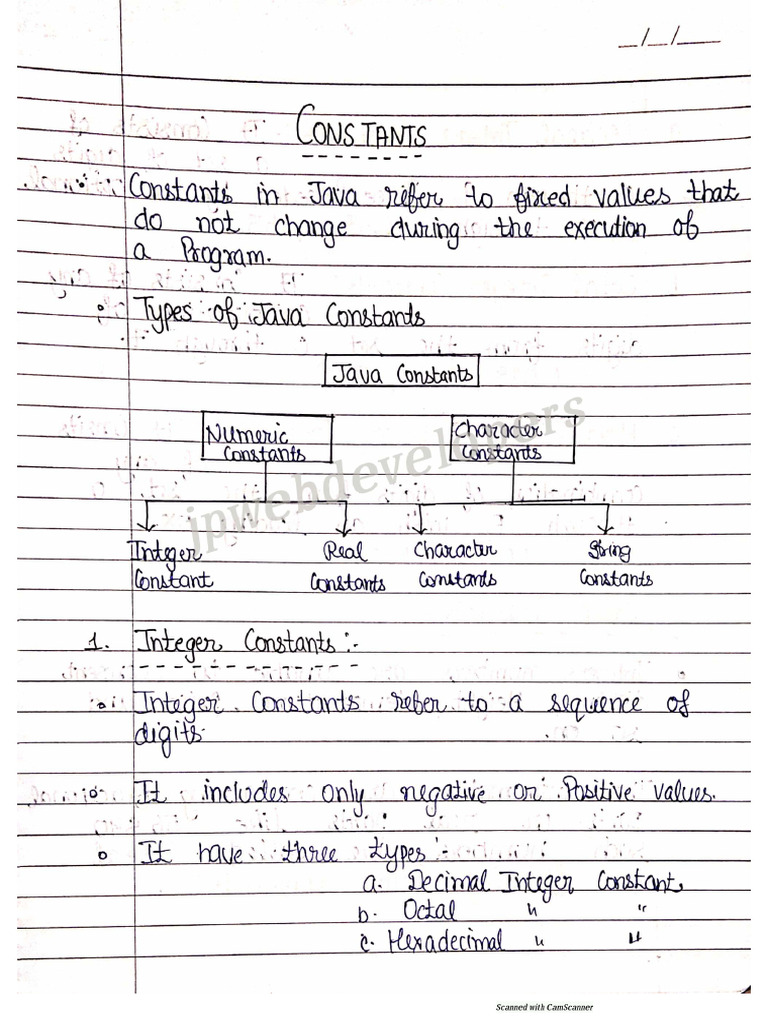 _/_/__
CONSTANTS
Constants in Java refer to fixed values that
do not change during the execution of
a Program.
Types of Java Constants
Java Constants
Numeric Constants
Character Constants
Integer Constant
Real Constants
Character Constants
String Constants
1. Integer Constants :-
Integer Constants refer to a sequence of
digits.
It includes only negative or Positive values.
It have three types :-
a. Decimal Integer Constant
b. Octal " "
c. Hexadecimal " "
jpwebdevelopers
Scanned with CamScanner